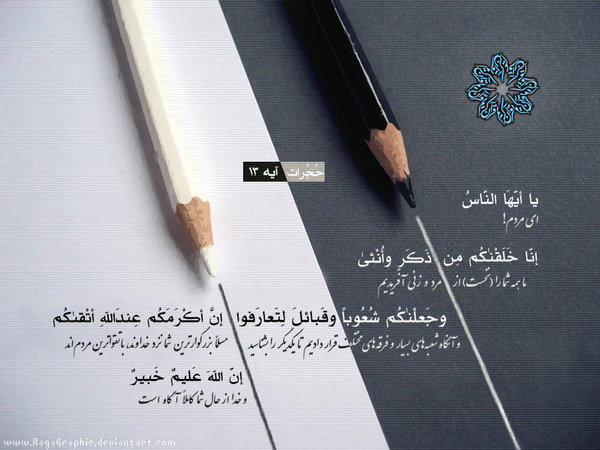 حُجُرات آیه ١٣
یا أیّهَا النّاسُ
ای مردم!
إنّا خَلَقْنٰکُم مِن ذَکَرٍ وأُنْثیٰ
ما همه شما را (نخست) از مرد و زنی آفریدیم
وجَعلْنٰکُم شُعُوباً وقَبائلَ لِتَعارَفوا إنَّ أکْرَمَکُم عِندَاللّٰهِ أتْقىٰکُم
و آنگاه شعبه‌های بسیار و فرقه‌های مختلف قرار دادیم تا یکدیگر را بشناسید مسلما بزرگوارترین شما نزد خداوند، با تقواترین مردم اند
إنّ اللّٰهَ عَلیمٌ خَبیرٌ
و خدا از حال شما کاملاً آگاه است
www.RagaGraphic.deviantart.com